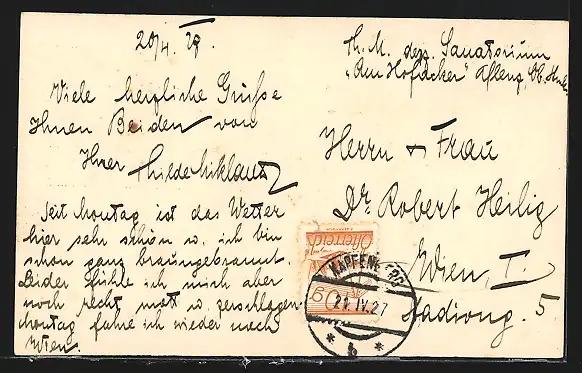 20/4. 27.
Viele herzliche Grüße
Ihnen Beiden von
Ihrer Hilde Niklautz
Seit Montag ist das Wetter
hier sehr schön u. ich bin
schon ganz braungebrannt.
Leider fühle ich mich aber
noch recht matt u. zerschlagen
Montag fahre ich wieder nach
Wien.
Th. M. dzt. Sanatorium
"Am Hofacker" Aflenz, Ob. Stmk.
Herrn & Frau
Dr. Robert Heilig
Wien, I.
Stadiong. 5
Österreich
10g
KAPFENBERG
21.IV.27
* b *